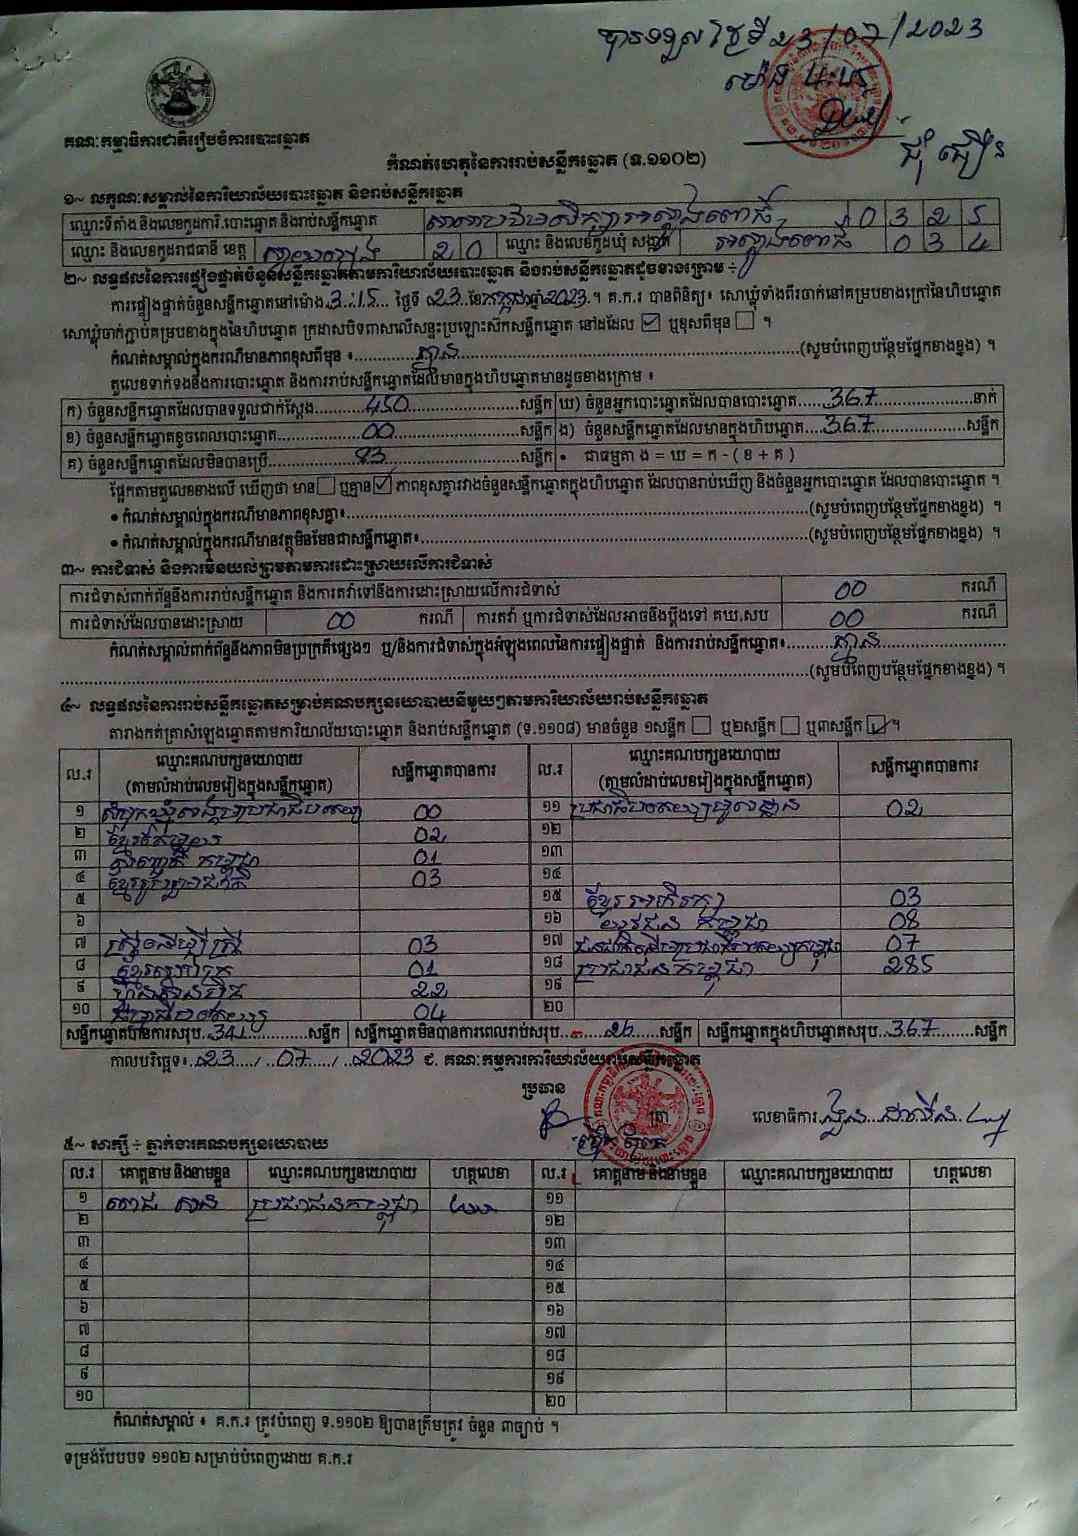 បានទទួល ថ្ងៃទី 23/07/2023
ម៉ោង
គណៈកម្មាធិការជាតិរៀបចំការបោះឆ្នោត
កំណត់ហេតុនៃការរាប់សន្លឹកឆ្នោត (ទ.១១០២)
១~ លក្ខណៈសម្គាល់នៃការិយាល័យបោះឆ្នោត និងរាប់សន្លឹកឆ្នោត
ឈ្មោះទីតាំង និងលេខកូដការិ.បោះឆ្នោត និងរាប់សន្លឹកឆ្នោត 0 3 2 5
ឈ្មោះ និងលេខកូដរាជធានី ខេត្ត 20 ឈ្មោះ និងលេខកូដឃុំ សង្កាត់ 0 3 4
២~ លទ្ធផលនៃការផ្ទៀងផ្ទាត់ចំនួនសន្លឹកឆ្នោតតាមការិយាល័យបោះឆ្នោត និងរាប់សន្លឹកឆ្នោតដូចខាងក្រោម ÷
ការផ្ទៀងផ្ទាត់ចំនួនសន្លឹកឆ្នោតនៅម៉ោង 3:15 ថ្ងៃទី 23 ខែ កក្កដា ឆ្នាំ 2023 ។ គ.ក.រ បានពិនិត្យ៖ សោឃ្លុំទាំងពីរចាក់នៅគម្របខាងក្រៅនៃហិបឆ្នោត
សោឃ្លុំចាក់ភ្ជាប់គម្របខាងក្នុងនៃហិបឆ្នោត ក្រដាសបិទពាសលើសន្ទះប្រឡោះស៊កសន្លឹកឆ្នោត នៅដដែល ☑ ឬខុសពីមុន ☐ ។
កំណត់សម្គាល់ក្នុងករណីមានភាពខុសពីមុន ៖ គ្មាន (សូមបំពេញបន្ថែមផ្នែកខាងខ្នង) ។
តួលេខទាក់ទងនឹងការបោះឆ្នោត និងការរាប់សន្លឹកឆ្នោតដែលមានក្នុងហិបឆ្នោតមានដូចខាងក្រោម ៖
ក) ចំនួនសន្លឹកឆ្នោតដែលបានទទួលជាក់ស្តែង 450 សន្លឹក ឃ) ចំនួនអ្នកបោះឆ្នោតដែលបានបោះឆ្នោត 367 នាក់
ខ) ចំនួនសន្លឹកឆ្នោតខូចពេលបោះឆ្នោត 00 សន្លឹក ង) ចំនួនសន្លឹកឆ្នោតដែលមានក្នុងហិបឆ្នោត 367 សន្លឹក
គ) ចំនួនសន្លឹកឆ្នោតដែលមិនបានប្រើ 83 សន្លឹក • ជាធម្មតា ង = ឃ = ក - ( ខ + គ )
ផ្អែកតាមតួលេខខាងលើ ឃើញថា មាន ☐ ឬគ្មាន ☑ ភាពខុសគ្នារវាងចំនួនសន្លឹកឆ្នោតក្នុងហិបឆ្នោត ដែលបានរាប់ឃើញ និងចំនួនអ្នកបោះឆ្នោត ដែលបានបោះឆ្នោត ។
• កំណត់សម្គាល់ក្នុងករណីមានភាពខុសគ្នា៖ (សូមបំពេញបន្ថែមផ្នែកខាងខ្នង) ។
• កំណត់សម្គាល់ក្នុងករណីមានវត្ថុមិនមែនជាសន្លឹកឆ្នោត៖ (សូមបំពេញបន្ថែមផ្នែកខាងខ្នង) ។
៣~ ការជំទាស់ និងការមិនយល់ព្រមតាមការដោះស្រាយលើការជំទាស់
ការជំទាស់ពាក់ព័ន្ធនឹងការរាប់សន្លឹកឆ្នោត និងការតវ៉ាទៅនឹងការដោះស្រាយលើការជំទាស់ 00 ករណី
ការជំទាស់ដែលបានដោះស្រាយ 00 ករណី ការតវ៉ា ឬការជំទាស់ដែលអាចនឹងប្តឹងទៅ គឃ.សប 00 ករណី
កំណត់សម្គាល់ពាក់ព័ន្ធនឹងភាពមិនប្រក្រតីផ្សេងៗ ឬ/និងការជំទាស់ក្នុងអំឡុងពេលនៃការផ្ទៀងផ្ទាត់ និងការរាប់សន្លឹកឆ្នោត៖ គ្មាន
(សូមបំពេញបន្ថែមផ្នែកខាងខ្នង) ។
៤~ លទ្ធផលនៃការរាប់សន្លឹកឆ្នោតសម្រាប់គណបក្សនយោបាយនីមួយៗតាមការិយាល័យរាប់សន្លឹកឆ្នោត
តារាងកត់ត្រាសំឡេងឆ្នោតតាមការិយាល័យបោះឆ្នោត និងរាប់សន្លឹកឆ្នោត (ទ.១១០៨) មានចំនួន ១សន្លឹក ☐ ឬ២សន្លឹក ☐ ឬ៣សន្លឹក ☑ ។
ល.រ ឈ្មោះគណបក្សនយោបាយ (តាមលំដាប់លេខរៀងក្នុងសន្លឹកឆ្នោត) សន្លឹកឆ្នោតបានការ ល.រ ឈ្មោះគណបក្សនយោបាយ (តាមលំដាប់លេខរៀងក្នុងសន្លឹកឆ្នោត) សន្លឹកឆ្នោតបានការ
១ សំបុកឃ្មុំសង្គមប្រជាធិបតេយ្យ 00 ១១ ប្រជាធិបតេយ្យមូលដ្ឋាន 02
២ ខ្មែរតែមួយ 02 ១២
៣ សញ្ជាតិកម្ពុជា 01 ១៣
៤ ខ្មែររួបរួមជាតិ 03 ១៤
៥ ១៥ ខ្មែរអភិរក្ស 03
៦ ១៦ យុវជនកម្ពុជា 08
៧ ស្ត្រីដើម្បីស្ត្រី 03 ១៧ 07
៨ 01 ១៨ ប្រជាជនកម្ពុជា 285
៩ ហ្វ៊ុនស៊ិនប៉ិច 22 ១៩
១០ 04 ២០
សន្លឹកឆ្នោតបានការសរុប 341 សន្លឹក សន្លឹកឆ្នោតមិនបានការពេលរាប់សរុប 26 សន្លឹក សន្លឹកឆ្នោតក្នុងហិបឆ្នោតសរុប 367 សន្លឹក
កាលបរិច្ឆេទ៖ 23 / 07 / 2023 ជ. គណៈកម្មការការិយាល័យរាប់សន្លឹកឆ្នោត
ប្រធាន
ត្រា លេខាធិការ
៥~ សាក្សី ÷ ភ្នាក់ងារគណបក្សនយោបាយ
ល.រ គោត្តនាម និងនាមខ្លួន ឈ្មោះគណបក្សនយោបាយ ហត្ថលេខា ល.រ គោត្តនាម និងនាមខ្លួន ឈ្មោះគណបក្សនយោបាយ ហត្ថលេខា
១ ប្រជាជនកម្ពុជា ១១
២ ១២
៣ ១៣
៤ ១៤
៥ ១៥
៦ ១៦
៧ ១៧
៨ ១៨
៩ ១៩
១០ ២០
កំណត់សម្គាល់ ៖ គ.ក.រ ត្រូវបំពេញ ទ.១១០២ ឱ្យបានត្រឹមត្រូវ ចំនួន ៣ច្បាប់ ។
ទម្រង់បែបបទ ១១០២ សម្រាប់បំពេញដោយ គ.ក.រ